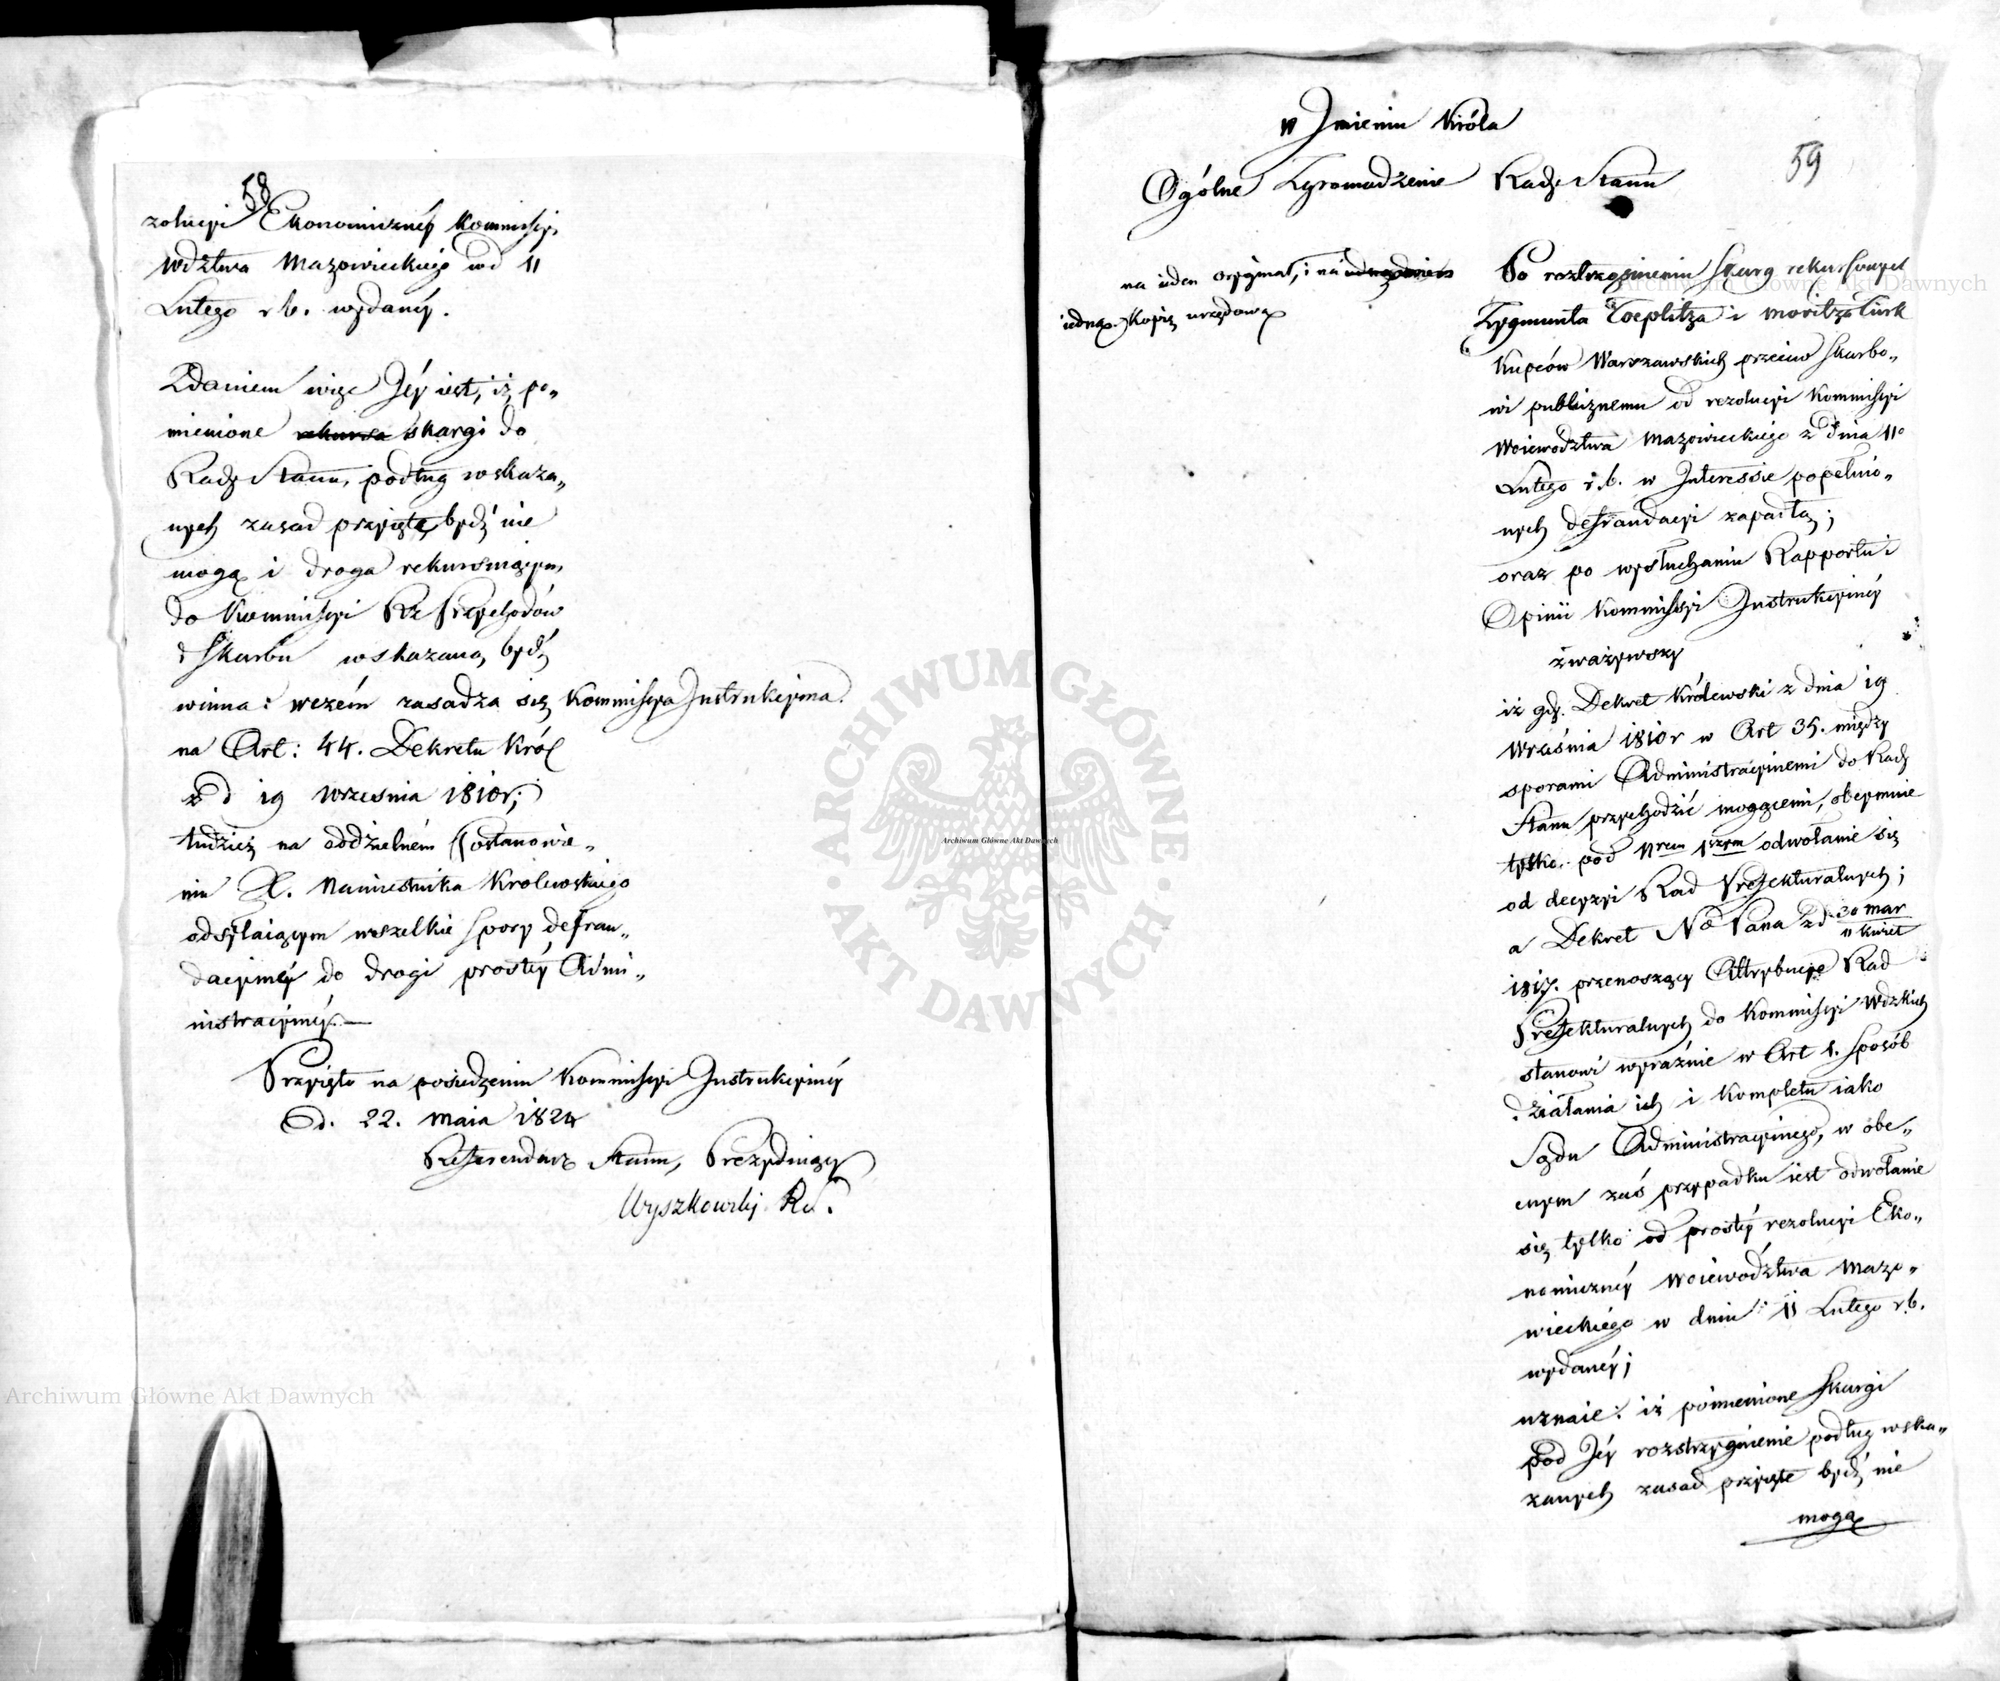 58
zolucyi Ekonomicznéy Kommissyi
Wdztwa Mazowieckiego w d 11
Lutego r b. wydanéy.
Zdaniem więc Jéy iest, iż po„
mienione rekursa skargi do
Rady Stanu, podług wskaza„
nych zasad przyięte bydź nie
mogą i droga rekursuiącym
do Kommissyi Rz Przychodów
i Skarbu wskazaną bydź
winna: wczém zasadza się Kommissya Instrukcyina
na Art: 44. Dekretu Król
z d 19 Września 1810r;
tudzież na oddzielném Postanowie„
niu X. Namiestnika Krolewskiego
odsyłaiącym wszelkie spory defrau„
dacyiney do drogi prostéy Admi„
nistracyinéy.—
Przyięto na posiedzeniu Kommissyi Instrukcyinéy
D. 22. Maia 1824
Referendarz Stanu, Prezyduiący
Wyszkowski R.S.
59
W Jmieniu Króla
Ogólne Zgromadzenie Rady Stanu
na ieden oryginał, i na
iedną Kopię urzędową
Po roztrząśnieniu skarg rekursowych
Zygmunta Toeplitza i Moritza Türk
Kupców Warszawskich przeciw Skarbo„
wi publicznemu od rezolucyi Kommissyi
Woiewodztwa Mazowieckiego z dnia 11o
Lutego r.b. w Interessie popełnio„
nych defraudacyi zapadłéy;
oraz po wysłuchaniu Rapportu i
Opinii Kommissyi Instrukcyinéy
zważywszy
iż gdy Dekret Królewski z dnia 19
Września 1810r w Art 35. między
sporami Administracyinemi do Rady
Stanu przychodzić mogącemi, obeymuie
tylko pod Nrem 1szym odwołanie się
od decyzyi Rad Prefekturalnych;
a Dekret No Pana z d 30 Mar
11 Kwiet
1817. przenoszący Attrybucye Rad
Prefekturalnych do Kommissyi Wdzkich
stanowi wyraźnie w Art 1. sposób
działania ich i Kompletu iako
Sądu Administracyinego, w obe„
cnym zaś przypadku iest odwołanie
się tylko od prostéy rezolucyi Eko„
nomicznéy Woiewództwa Mazo„
wieckiego w dniu 11 Lutego r.b.
wydanéy;
uznaie: iż pomienione skargi
pod Jéy rozstrzygnienie podług wska„
zanych zasad przyięte bydź nie
mogą
Archiwum Główne Akt Dawnych
ARCHIWUM GŁÓWNE
AKT DAWNYCH
Archiwum Główne Akt Dawnych
Archiwum Główne Akt Dawnych